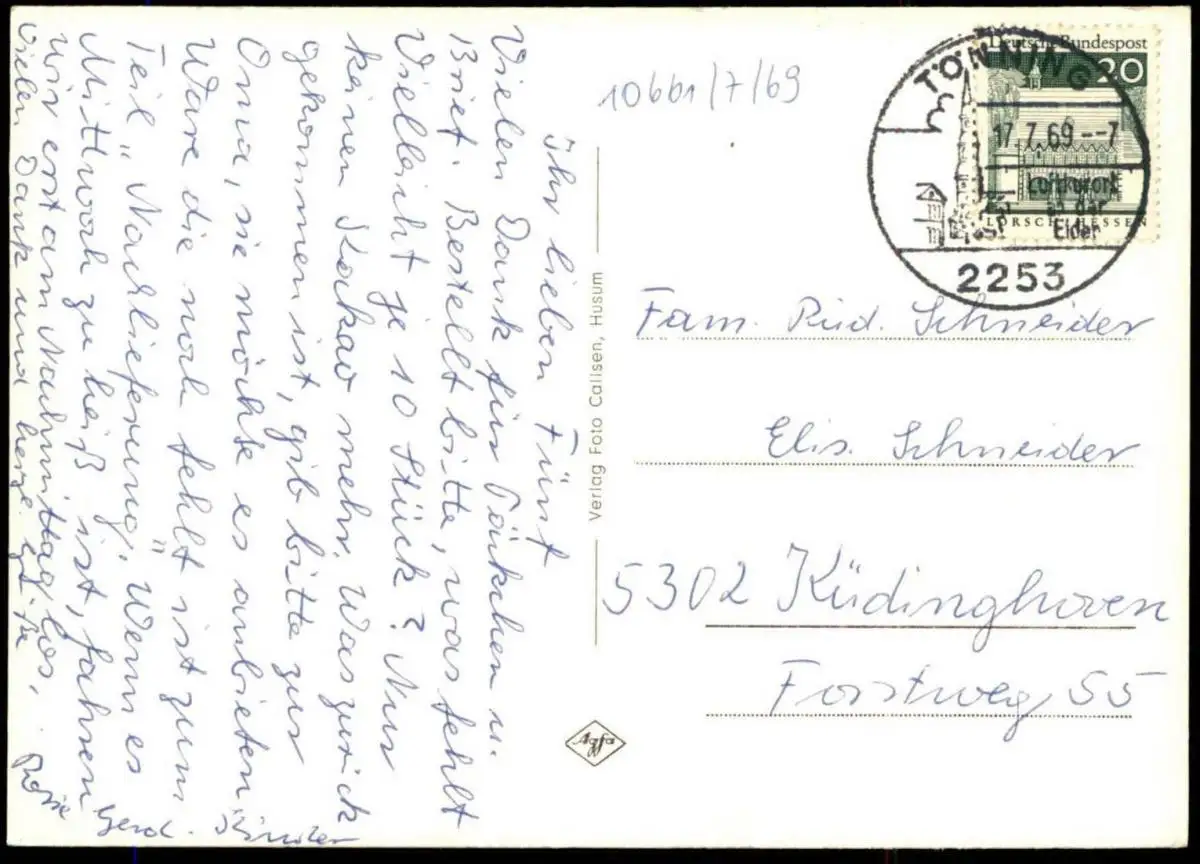 Ihr lieben Fürst
Vielen Dank für Päckchen u.
Brief. Bestellt bitte, was fehlt
Vielleicht je 10 Stück? Nur
keinen Kakao mehr. Was zurück
gekommen ist, gib bitte zur
Oma, sie möchte es anbieten.
Ware die noch fehlt ist zum
Teil „Nachlieferung". Wenn es
Mittwoch zu heiß ist, fahren
wir erst am Nachmittag los.
Vielen Dank und herzl. Grüße
Gerd. Kinder
Verlag Foto Callsen, Husum
Agfa
10661/7/69
Deutsche Bundespost
20
LORSCH HESSEN
TÖNNING
17.7.69--7
Luftkurort
an der
Eider
2253
Fam. Rud. Schneider
Elis. Schneider
5302 Küdinghoven
Forstweg 55